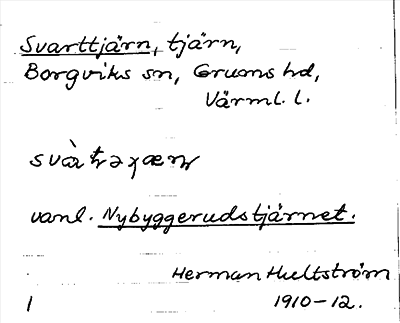 Svarttjärn, tjärn,
Borgviks sn, Grums hd,
Värml. l.
vanl. Nybyggerudstjärnet.
Herman Hultström
1910-12.
1